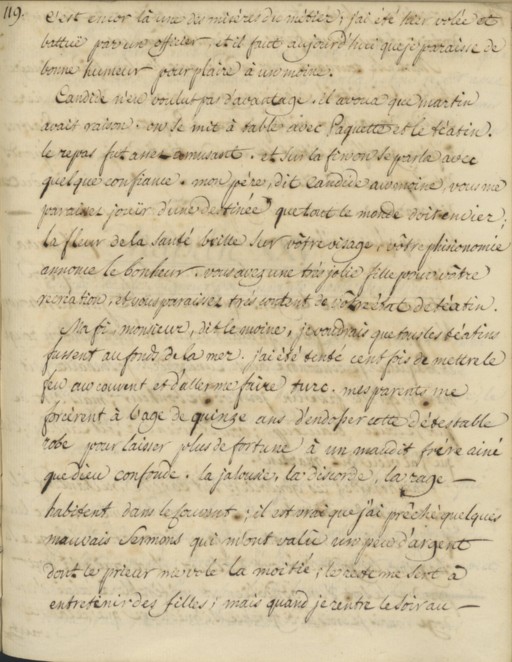 119.
c'est encor là une des misères du métier; j'ai été hier volée et
battüe par un officier, et il faut aujourd'hui que je paraisse de
bonne humeur pour plaire à un moine.
Candide n'en voulut pas d'avantage. il avoua que martin
avait raison. on se mit à table avec Paquette et le téatin.
le repas fut assez amusant. et sur la fin on se parla avec
quelque confiance. mon père, dit Candide au moine, vous me
paraissez jouïr d'une destinée que tout le monde doit envier;
la fleur de la santé brille sur vôtre visage, vôtre phisionomie
annonce le bonheur. vous avez une très jolie fille pour vôtre
recréation, et vous paraissez très content de vôtre état de téatin.
Ma fi, monsieur, dit le moine, je voudrais que tous les téatins
fussent au fonds de la mer. j'ai été tenté cent fois de mettre le
feu au couvent et d'aller me faire turc. mes parents me
forcèrent à l'age de quinze ans d'endosser cette détestable
robe pour laisser plus de fortune à un maudit frére ainé
que dieu confonde. la jalousie, la discorde, la rage —
habitent dans le couvent; il est vrai que j'ai prêché quelques
mauvais sermons qui m'ont valu un peu d'argent
dont le prieur me vole la moitié; le reste me sert à
entretenir des filles; mais quand je rentre le soir au —